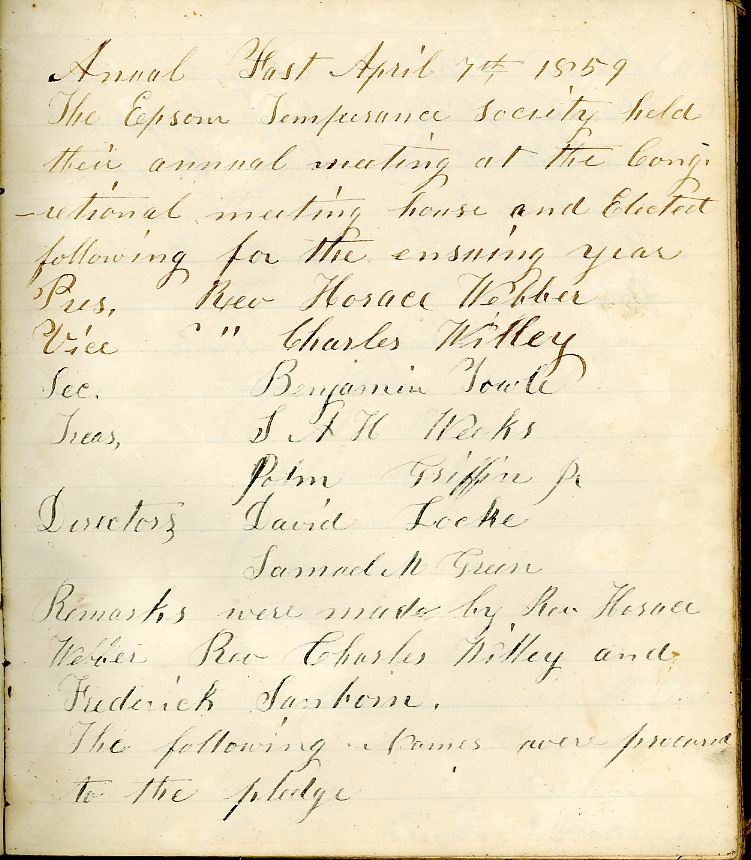 Anual Fast April 7th 1859
The Epsom Temperance Society held
their annual meeting at the Cong.
-retional meeting house and Elected
following for the ensuing year
Pres, Rev Horace Webber
Vice " " Charles Willey
Sec. Benjamin Towle
Treas, S A H Weeks
John Griffin Jr
Directors David Locke
Samuel M Green
Remarks were made by Rev Horace
Webber Rev Charles Willey and
Frederick Sanborn.
The following Names were procured
to the pledge